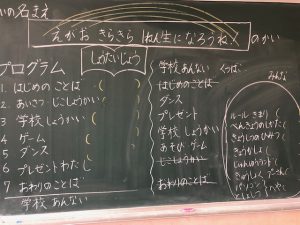 いの名まえ
えがお きらきら 1ねん生になろうね！のかい
しょうたいじょう
プログラム
1 はじめのことば（　）
2 あいさつ じこしょうかい（　）
3 学校しょうかい（　）
4 ゲーム（　）
5 ダンス（　）
6 プレゼントわたし
7 おわりのことば
学校 あんない
学校あんない くつは、
はじめのことば
ダンス
プレゼント
学校しょうかい
あそび ゲーム
じこしょうかい
おわりのことば
みんな
ルール きまり
べんきょうのしかた
がっしょう